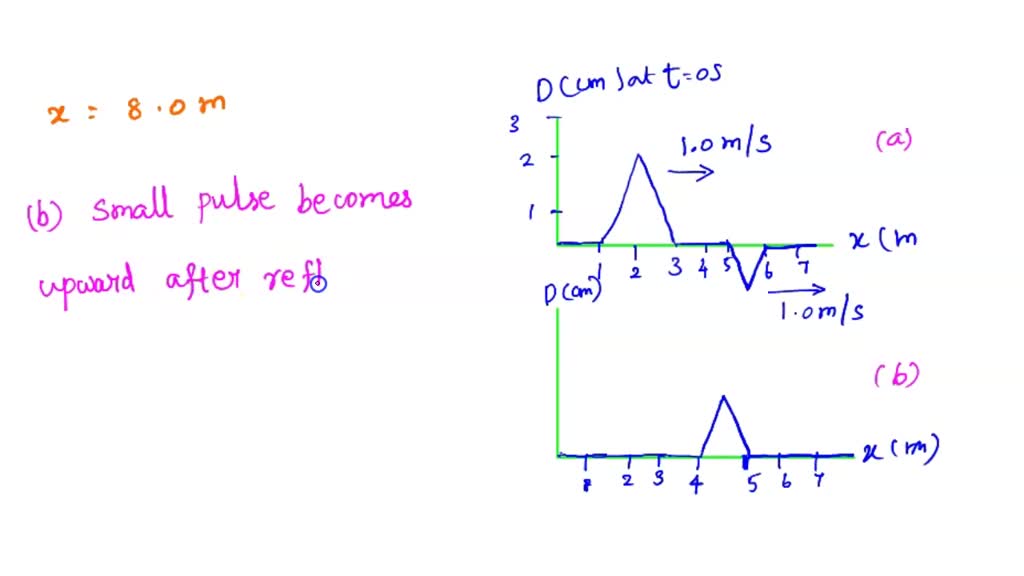 x = 8.0 m
(b) Small pulse becomes
upward after refl
D(cm) at t=0s
3
2
1
1.0 m/s
(a)
x (m
1 2 3 4 5 6 7
1.0 m/s
D(cm)
(b)
x (m)
1 2 3 4 5 6 7